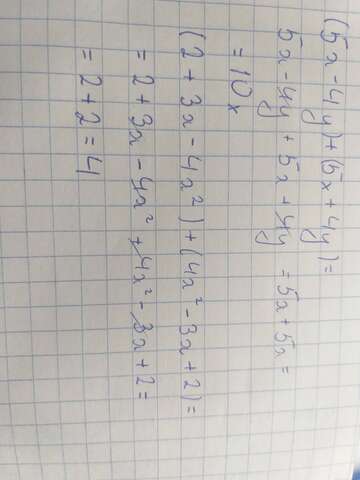 (5x-4y)+(5x+4y)=
5x-4y+5x+4y=5x+5x=
=10x
(2+3x-4x²)+(4x²-3x+2)=
=2+3x-4x²+4x²-3x+2=
=2+2=4